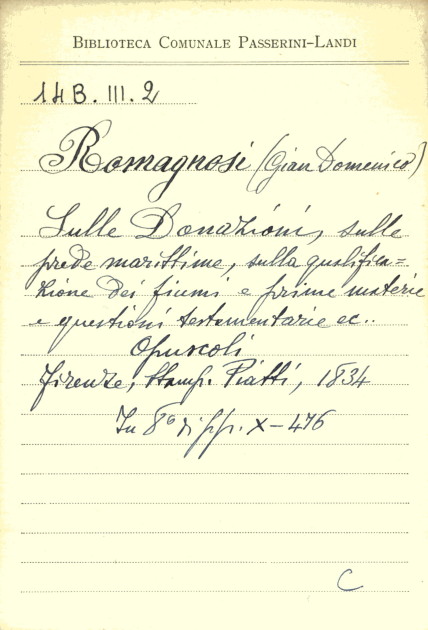 BIBLIOTECA COMUNALE PASSERINI-LANDI
14B. III. 2
Romagnosi (Gian Domenico)
Sulle Donazioni, sulle
prede marittime, sulla qualifica=
zione dei fiumi e prime materie
e questioni testamentarie ec..
Opuscoli
Firenze, Stamp. Piatti, 1834
In 8º di pp. X-476
C